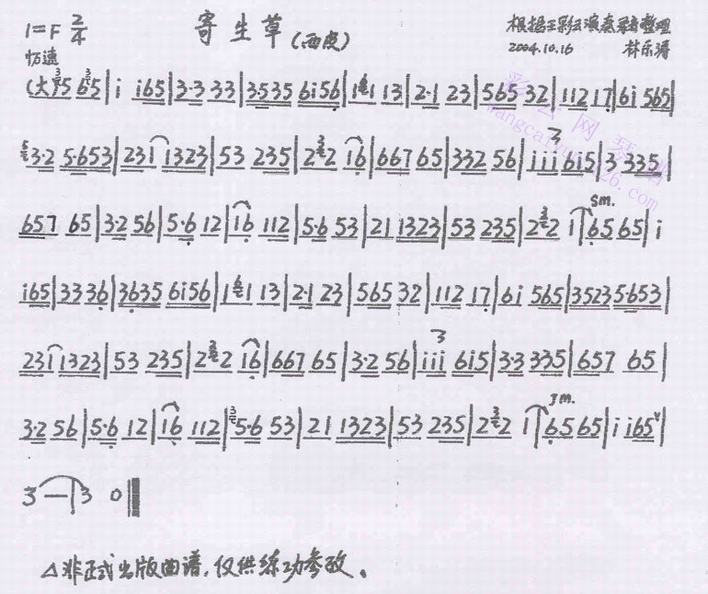 1=F 2/4 寄生草(西皮) 根据王彩云演奏录音整理
2004.10.16 林乐涛
忄万速
(大) 35 65|i i65|3·3 33|3535 6i56|1 1 13|2·1 23|565 32|112 17|6i 565|
3·2 5·653|231 1323|53 235|2 2 16|667 65|332 56|iii 6i5|3 335|
657 65|3·2 56|5·6 12|16 112|5·6 53|21 1323|53 235|2 2 1|65 65|i
i65|33 36|3635 6i56|1 1 13|2·1 23|565 32|112 17|6i 565|3523 5·653|
231 1323|53 235|2 2 16|667 65|3·2 56|iii 6i5|3·3 335|657 65|
3·2 56|5·6 12|16 112|5·6 53|21 1323|53 235|2 2 1|65 65|i i65|
3 —|3 0‖
△非正式出版曲谱,仅供练功参改。